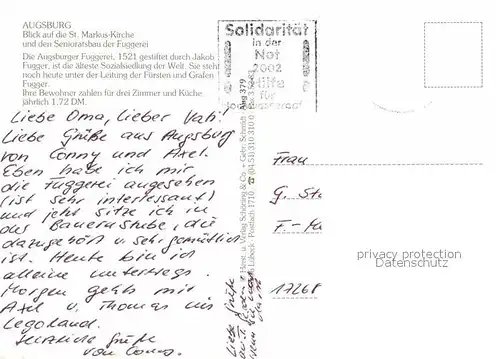 AUGSBURG
Blick auf die St. Markus-Kirche
und den Senioratsbau der Fuggerei
Die Augsburger Fuggerei, 1521 gestiftet durch Jakob
Fugger, ist die älteste Sozialsiedlung der Welt. Sie steht
noch heute unter der Leitung der Fürsten und Grafen
Fugger.
Ihre Bewohner zahlen für drei Zimmer und Küche
jährlich 1.72 DM.
Solidarität
in der
Not
2002
Hilfe
für
Liebe Oma, lieber Vati!
Liebe Grüße aus Augsburg
von Conny und Axel.
Eben habe ich mir
die Fuggerei angesehen
(ist sehr interessant)
und jetzt sitze ich in
der Bauernstube, die
dazugehört u. sehr gemütlich
ist. Heute bin ich
alleine unterwegs.
Morgen geht's mit
Axel u. Thomas ins
Legoland.
Herzliche Grüße
von Conny
Liebe Grüße
Herst. u. Verlag Schöning & Co. + Gebr. Schmidt
Lübeck
Frau
G. St
F.-
17268
privacy protection
Datenschutz